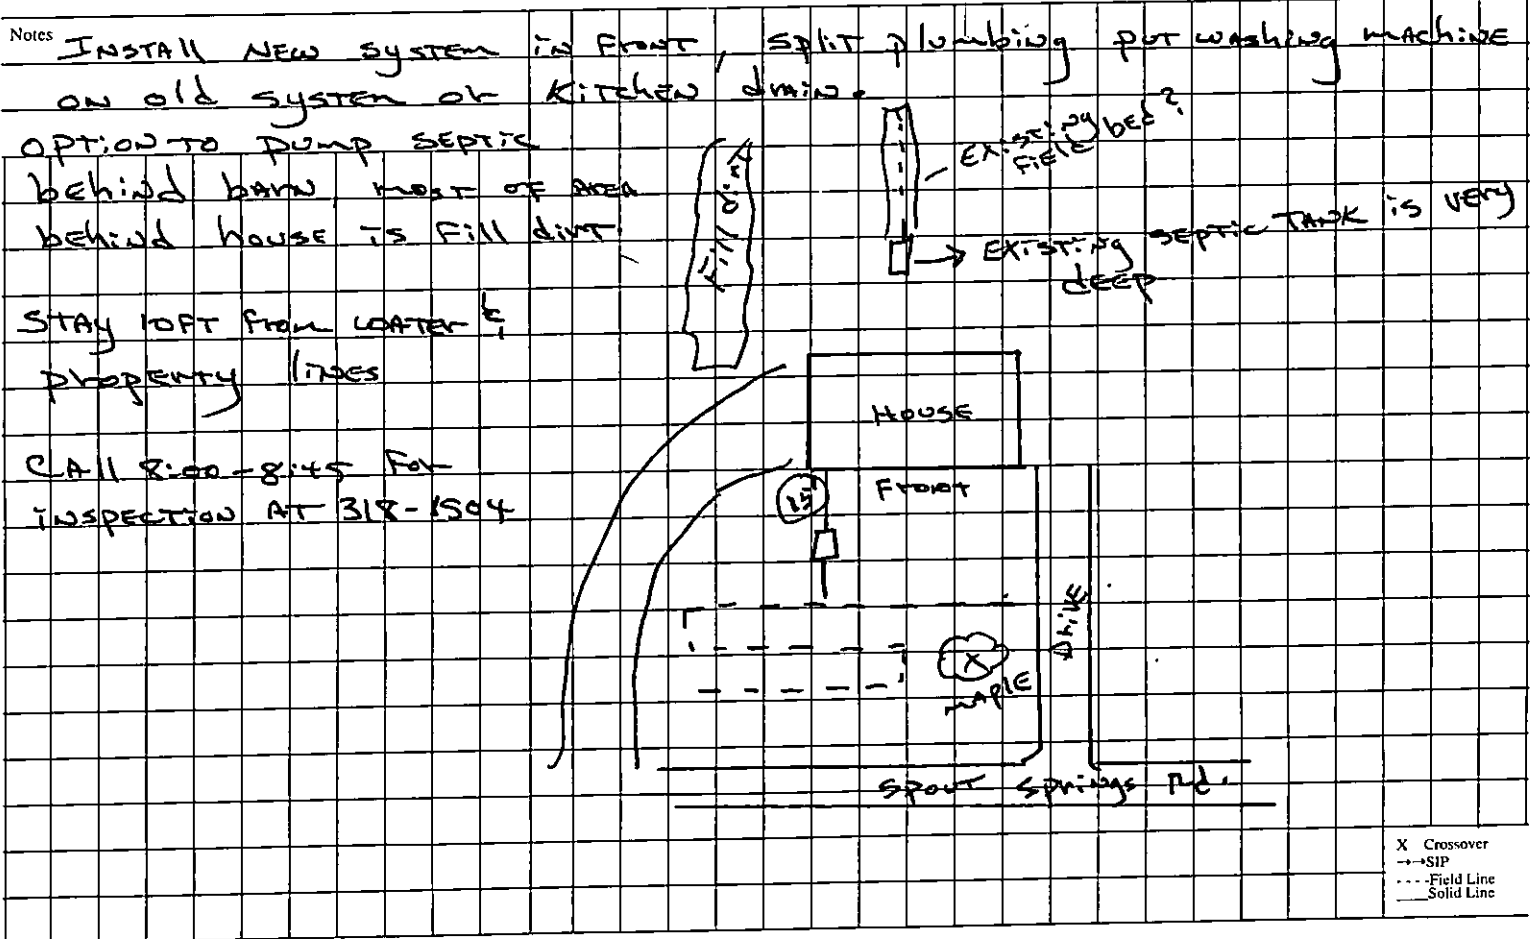 Notes
Install new system in front, split plumbing put washing machine
on old system or kitchen drain.
option to pump septic
behind barn most of area
behind house is fill dirt
Stay 10ft from water &
property lines
Call 8:00-8:45 for
inspection at 318-1504
Fill dirt
Existing bed?
Field
Existing septic tank is very
deep
House
Front
15'
Drive
X
maple
Spout Springs Rd.
X Crossover
SIP
----Field Line
Solid Line